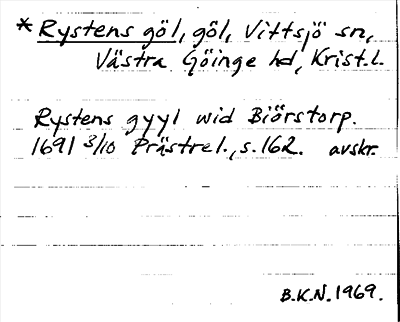 * Rystens göl, göl, Vittsjö sn,
Västra Göinge hd, Krist.l.
Rystens gyyl wid Biörstorp.
1691 3/10 Prästrel., s. 162. avskr.
B.K.N. 1969.